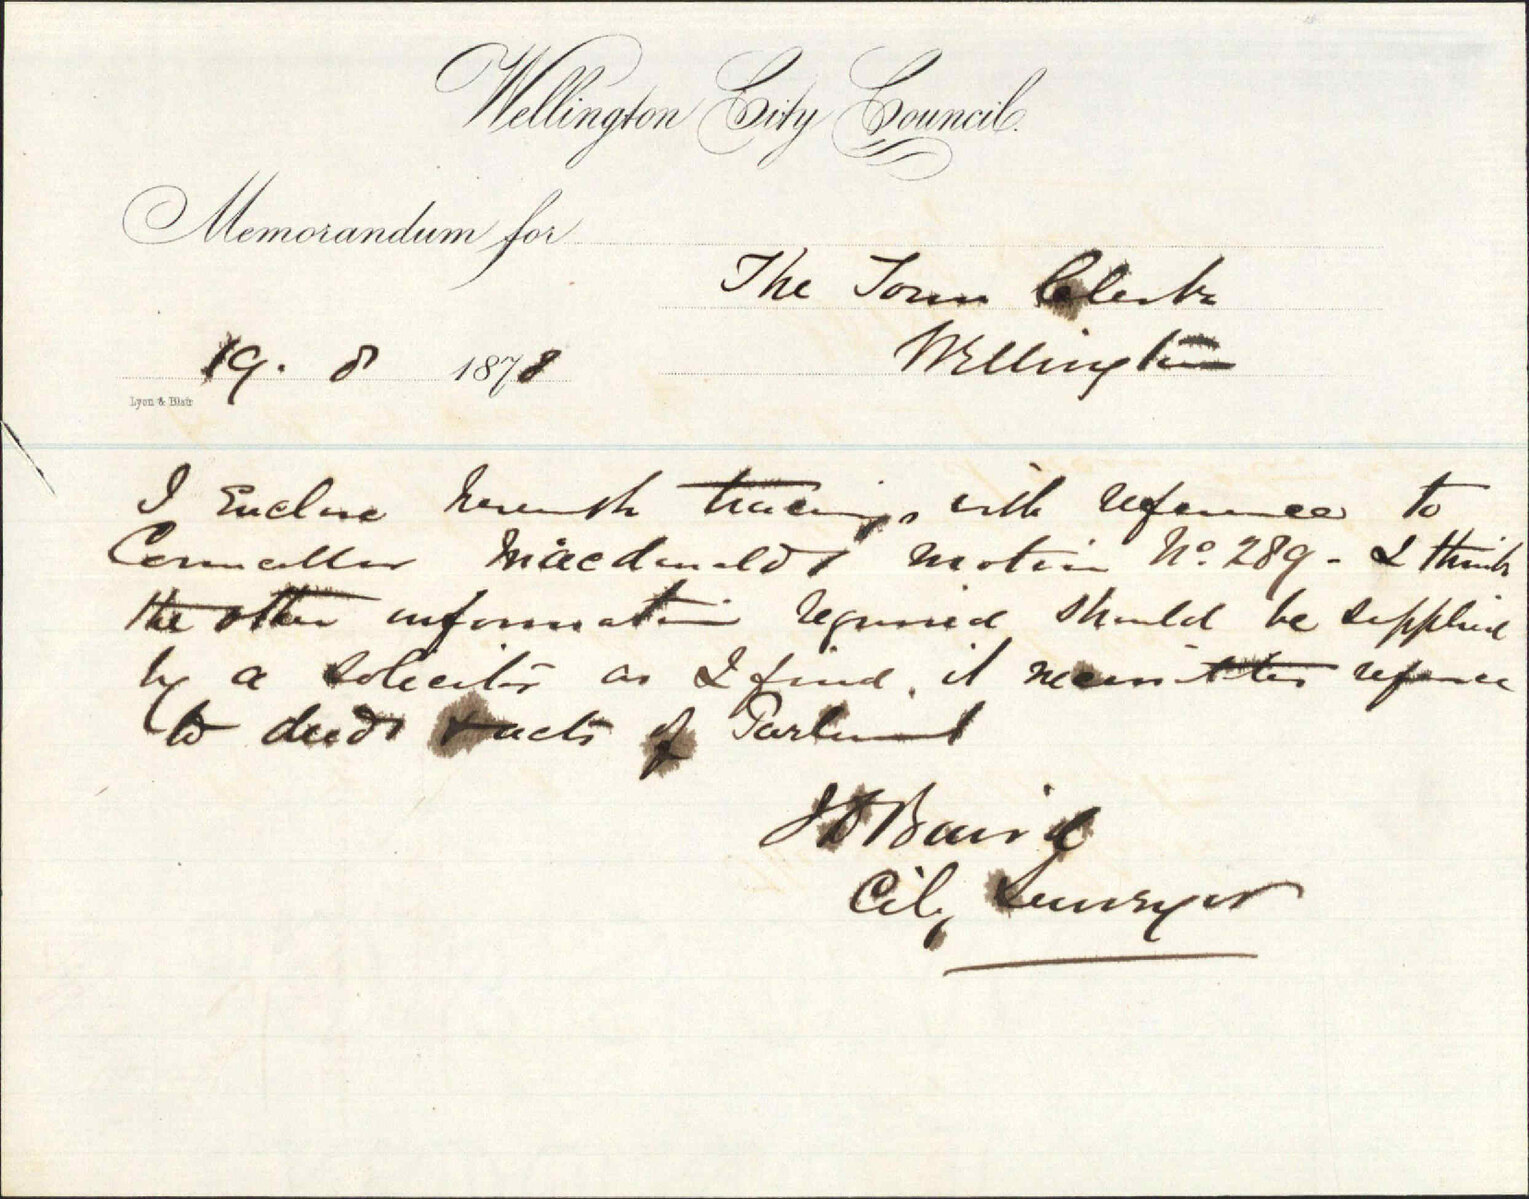 Wellington City Council.
Memorandum for
The Town Clerk
Wellington
19. 8 1878
Lyon & Blair
I Enclose herewith tracings with reference to
Councillor Macdonalds motion No. 289 - I think
the other information required should be supplied
by a solicitor as I find it necessitates reference
to deeds & acts of Parliament
J D Baird
City Surveyor